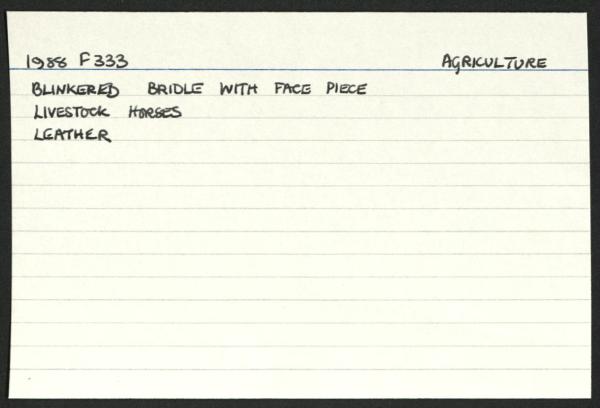 1988 F333 AGRICULTURE
BLINKERED BRIDLE WITH FACE PIECE
LIVESTOCK HORSES
LEATHER